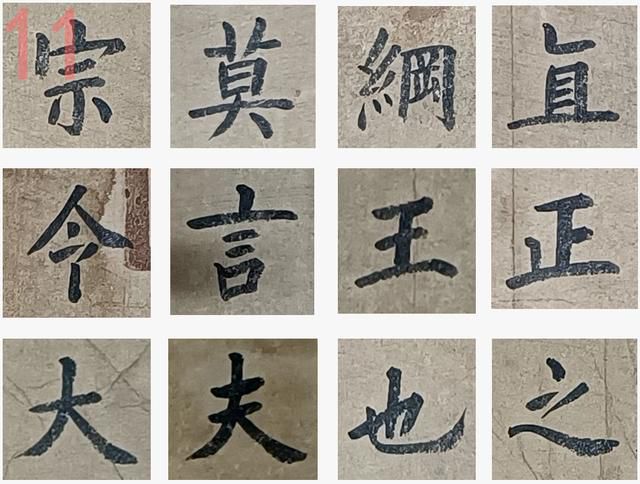 11
宗莫綱直
今言王正
大夫也之